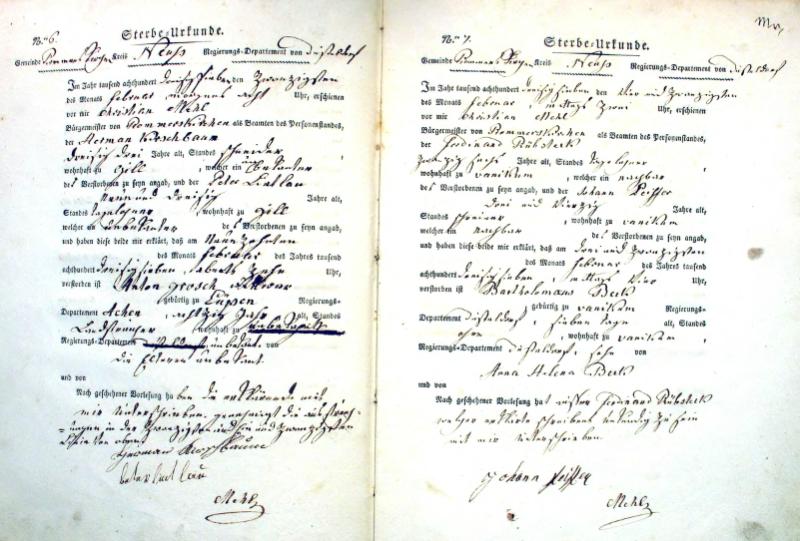 No. 6.
Sterbe-Urkunde.
Gemeinde Rommerskirchen Kreis Neuss Regierungs-Departement von Düsseldorf
Im Jahr tausend achthundert dreisig sieben den Zwanzigsten
des Monats februar morgens acht Uhr, erschienen
vor mir Christian Mehl
Bürgermeister von Rommerskirchen als Beamten des Personenstandes,
der Herman Kirschbaum
dreisig drei Jahre alt, Standes schneider
wohnhaft zu Gill, welcher ein Bekanter
des Verstorbenen zu seyn angab, und der Peter
neun und dreisig Jahre alt,
Standes tagelöner, wohnhaft zu Gill
welcher ein unbekanter des Verstorbenen zu seyn angab,
und haben diese beide mir erklärt, daß am Neunzehnten
des Monats februar des Jahres tausend
achthundert dreisig sieben, abents zehn Uhr,
verstorben ist Anton grosch
gebürtig zu Eupen Regierungs-
Departement Achen, achtzig Jahr alt, Standes
wohnhaft zu
Regierungs-Departement unbekant, von
die Elteren unbekant
und von
Nach geschehener Vorlesung haben die erklärende mit
mir unterschrieben. genehmigt die
in der Zwanzigsten und ein und zwanzigsten
Herman Kirschbaum
Mehl
No. 7.
Sterbe-Urkunde.
Gemeinde Rommerskirchen Kreis Neuss Regierungs-Departement von Düsseldorf
Im Jahr tausend achthundert dreisig sieben den Vier und zwanzigsten
des Monats februar, mittags zwei Uhr, erschienen
vor mir Christian Mehl
Bürgermeister von Rommerskirchen als Beamten des Personenstandes,
der Ferdinand Rübsteck
zwanzig sechs Jahre alt, Standes tagelöner
wohnhaft zu vanikum, welcher ein nachbar
des Verstorbenen zu seyn angab, und der Johann Peiffer
drei und vierzig Jahre alt,
Standes schreiner, wohnhaft zu vanikum
welcher ein nachbar des Verstorbenen zu seyn angab,
und haben diese beide mir erklärt, daß am drei und zwanzigsten
des Monats februar des Jahres tausend
achthundert dreisig sieben, mittags vier Uhr,
verstorben ist Bartholomaus Beck
gebürtig zu vanikum Regierungs-
Departement Düsseldorf, sieben tage alt, Standes
ohne, wohnhaft zu vanikum,
Regierungs-Departement Düsseldorf, sohn von
Anna Helena Beck
und von
Nach geschehener Vorlesung hat Ferdinand Rübsteck
erklärte schreibens unkundig zu sein
mit mir unterschrieben.
Johann Peiffer
Mehl